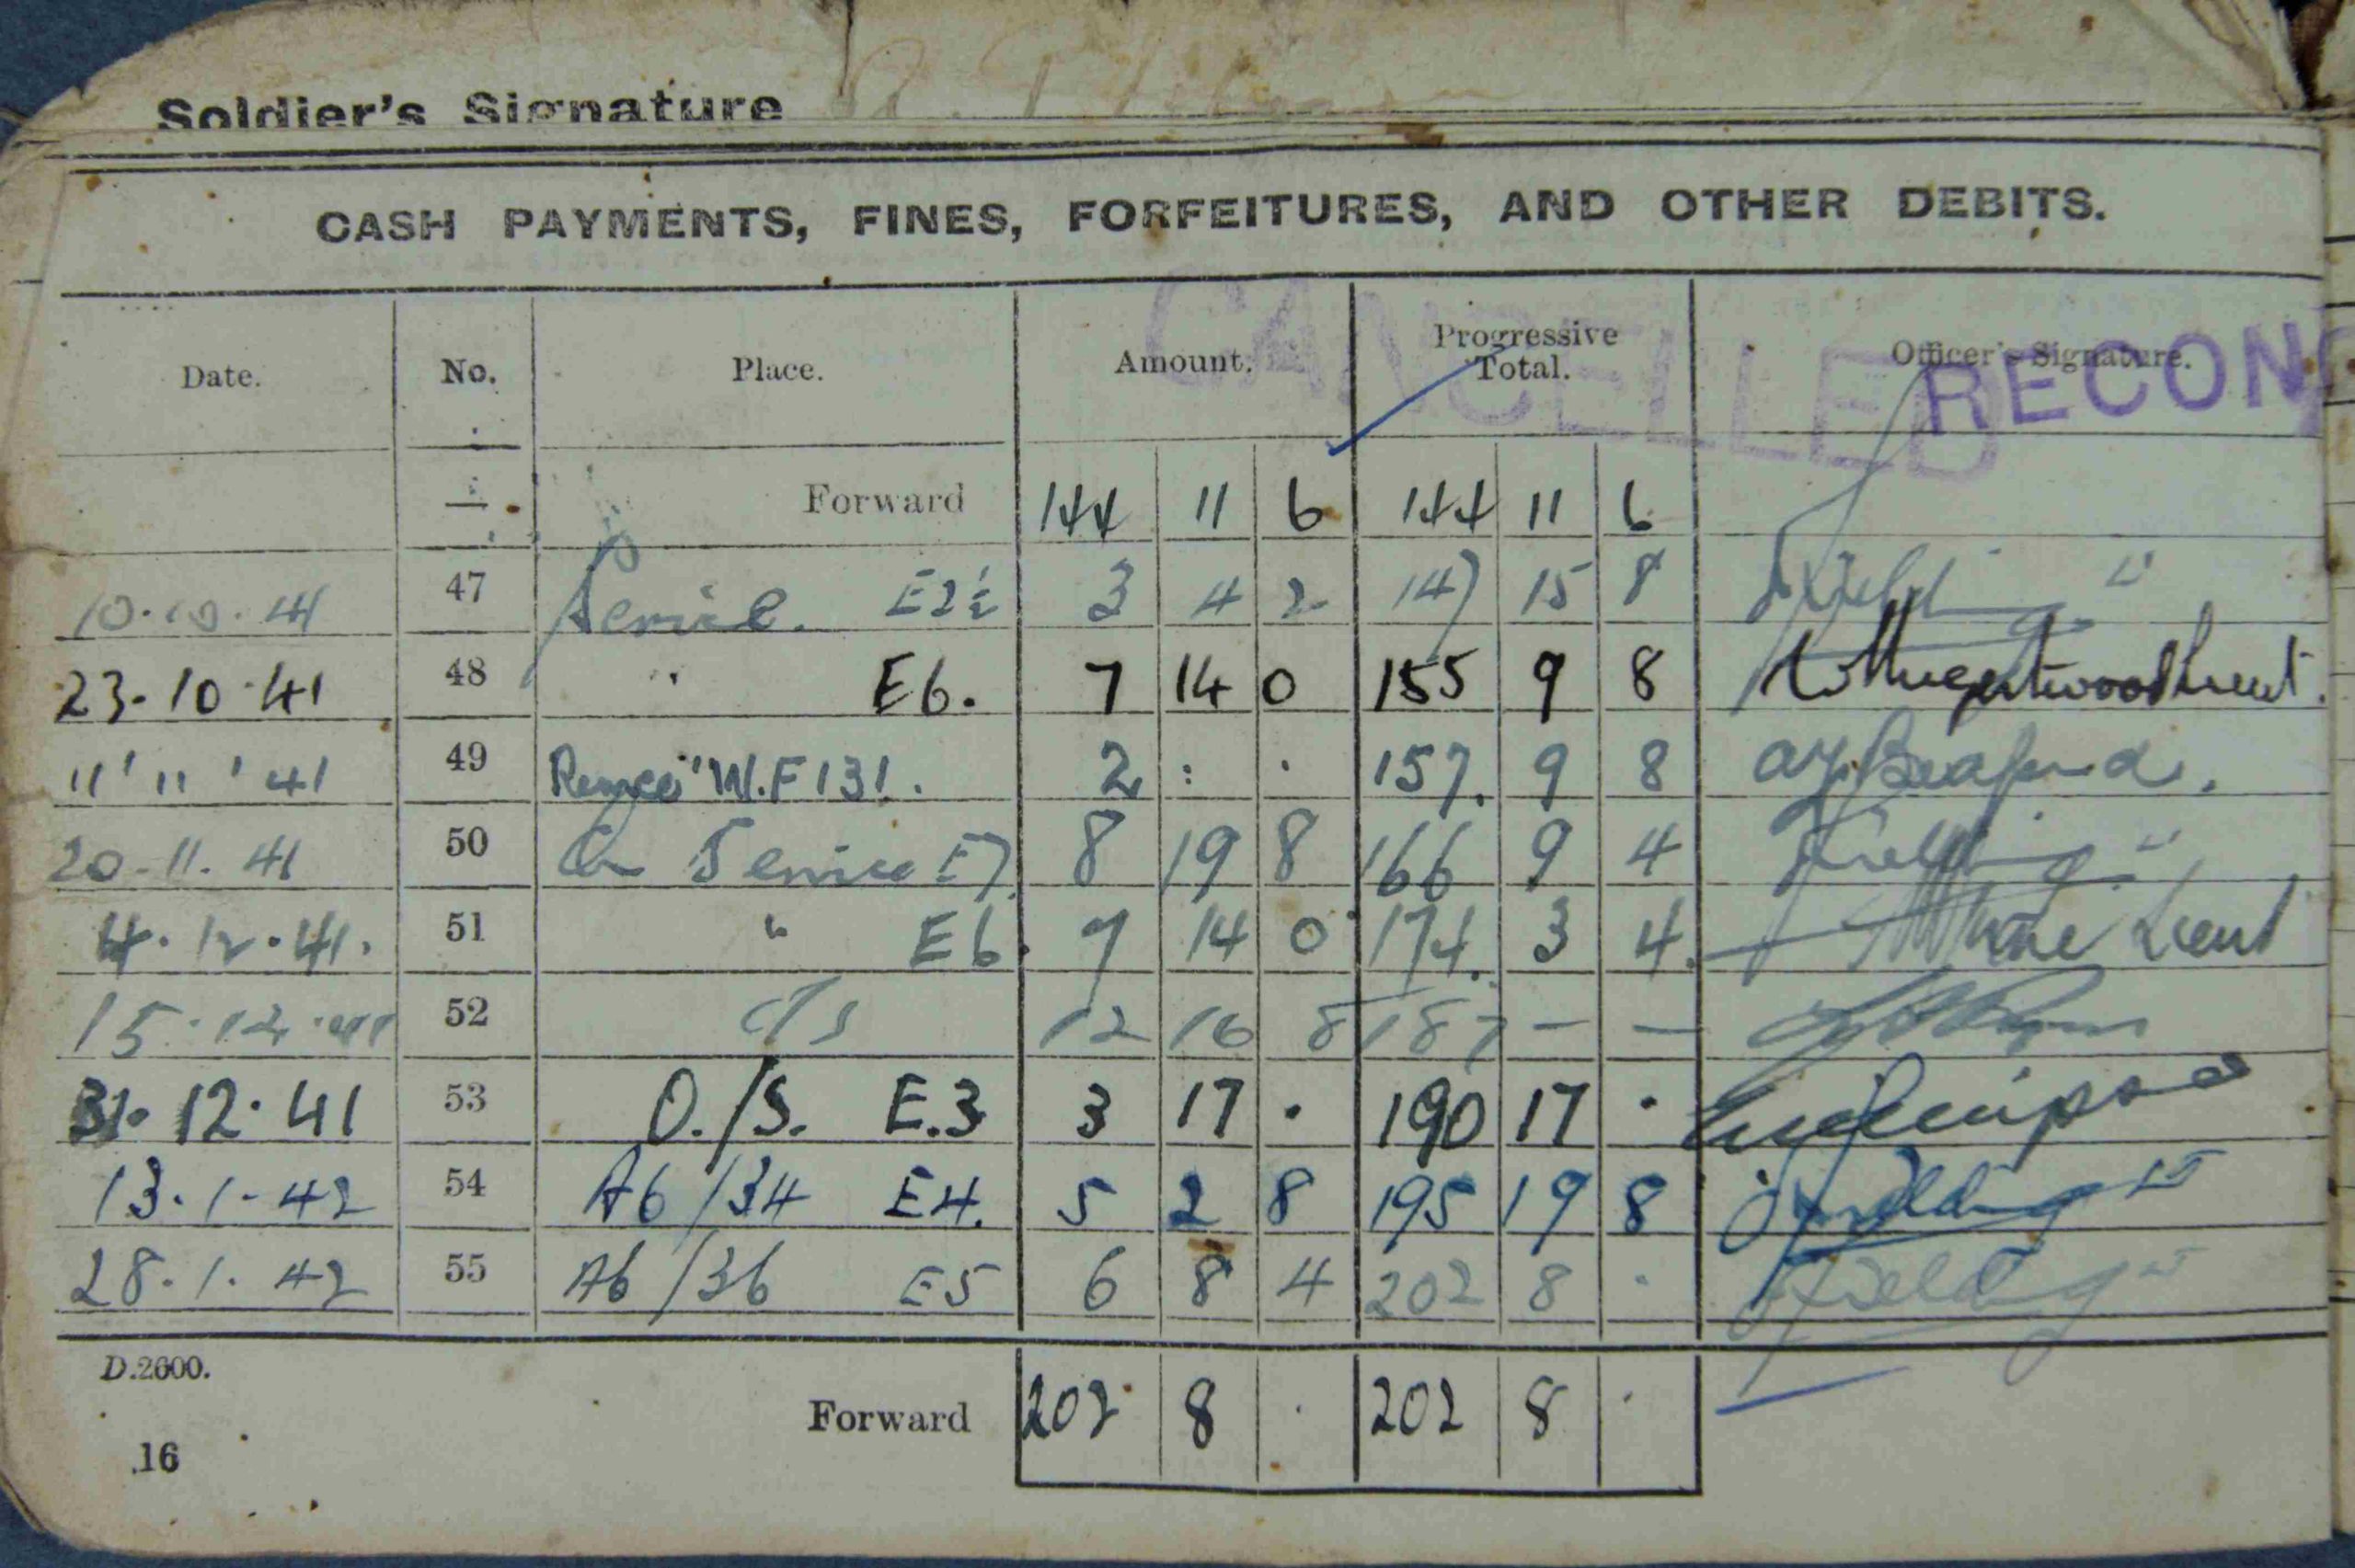 Soldier's Signature
CASH PAYMENTS, FINES, FORFEITURES, AND OTHER DEBITS.
CANCELLED
RECON
Date. No. Place. Amount. Progressive Total. Officer's Signature.
Forward 144 11 6 144 11 6
10.10.41 47 Service. E2½ 3 4 2 147 15 8 Fielding Lt
23.10.41 48 " E6. 7 14 0 155 9 8 Lieut.
11'11'41 49 W.F 131. 2 : . 157. 9 8
20.11.41 50 On Service E7 8 19 8 166 9 4 Fielding Lt
4.12.41. 51 " E6. 7 14 0 174. 3 4. Lieut
15.12.41 52 O/S 12 16 8 187 — —
31.12.41 53 O./S. E.3 3 17 . 190 17 .
13.1.42 54 A6/34 E4. 5 2 8 195 19 8 Fielding Lt
28.1.42 55 A6/36 E5 6 8 4 202 8 . Fielding Lt
D.2600.
Forward 202 8 . 202 8 .
16